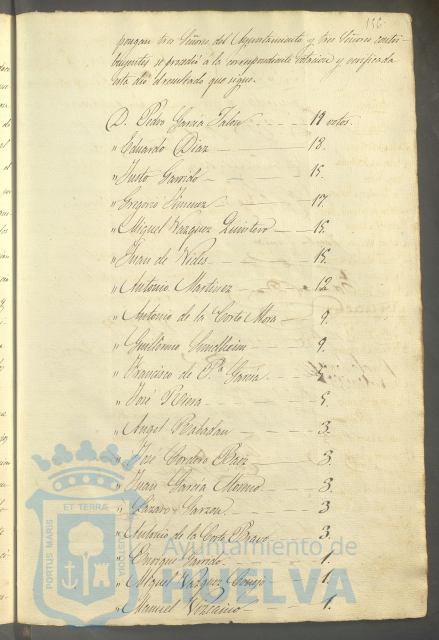 156
pongan tres Señores del Ayuntamiento y tres Señores contri-
buyentes se procedió á la correspondiente votacion y verificada
esta dió el resultado que sigue.
D. Pedro Garcia Jalon 19 votos.
" Eduardo Diaz 18.
" Justo Garrido 15.
" Gregorio Jimenez 17.
" Miguel Vazquez Quintero 15.
" Juan de Vides 15.
" Antonio Martinez 12
" Antonio de la Corte Mora 9.
" Guillermo 9.
" Francisco de Pla Garcia
" José Riera 5.
" Angel Rabadan 3.
" José Cordero Baez 3.
" Juan Garcia Moreno 3.
" Lazaro Garzon 3
" Antonio de la Corte Bravo 3.
" Enrique Garrido 1.
" Miguel Vazquez 1.
" Manuel Vizcaino 1.
PORTUS MARIS ET TERRÆ CUSTODIA
Ayuntamiento de
HUELVA